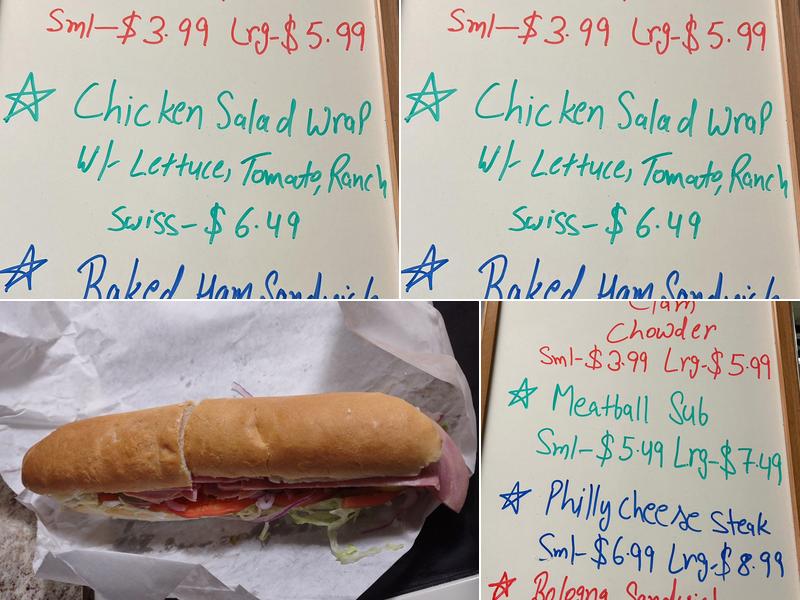 Sml-$3.99 Lrg-$5.99
Chicken Salad Wrap
W/- Lettuce, Tomato, Ranch
Swiss-$6.49
Baked Ham Sandwich
Sml-$3.99 Lrg-$5.99
Chicken Salad Wrap
W/- Lettuce, Tomato, Ranch
Swiss-$6.49
Baked Ham Sandwich
Clam
Chowder
Sml-$3.99 Lrg-$5.99
Meatball Sub
Sml-$5.49 Lrg-$7.49
Philly cheese Steak
Sml-$6.99 Lrg-$8.99
Bologna Sandwich